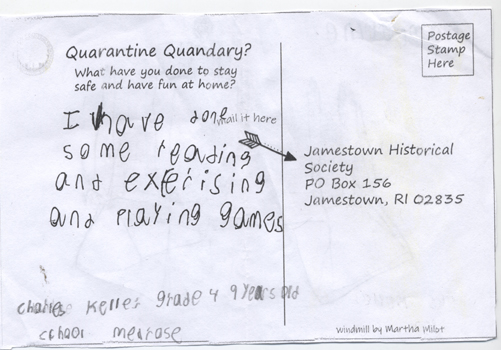 Quarantine Quandary?
What have you done to stay
safe and have fun at home?
Postage
Stamp
Here
I have done
mail it here
some reading
and exerising
and Playing games
Jamestown Historical
Society
PO Box 156
Jamestown, RI 02835
charles Keller grade 4 9 years old
cchool melrose
Windmill by Martha Milot